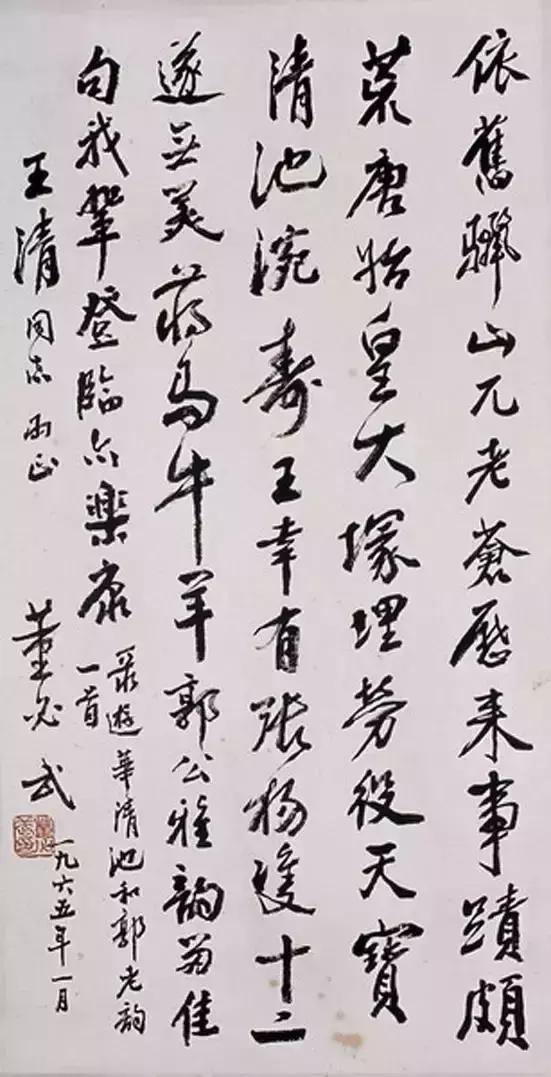 依舊驪山兀老蒼歷来事蹟頗
荒唐始皇大塚埋勞役天寶
清池浣壽王幸有張楊雙十二
遂無美蔣馬牛羊郭公雅韵留佳
句我輩登臨亦樂康
遊華清池和郭老韵
一首
王清同志正
董必武
一九六五年一月